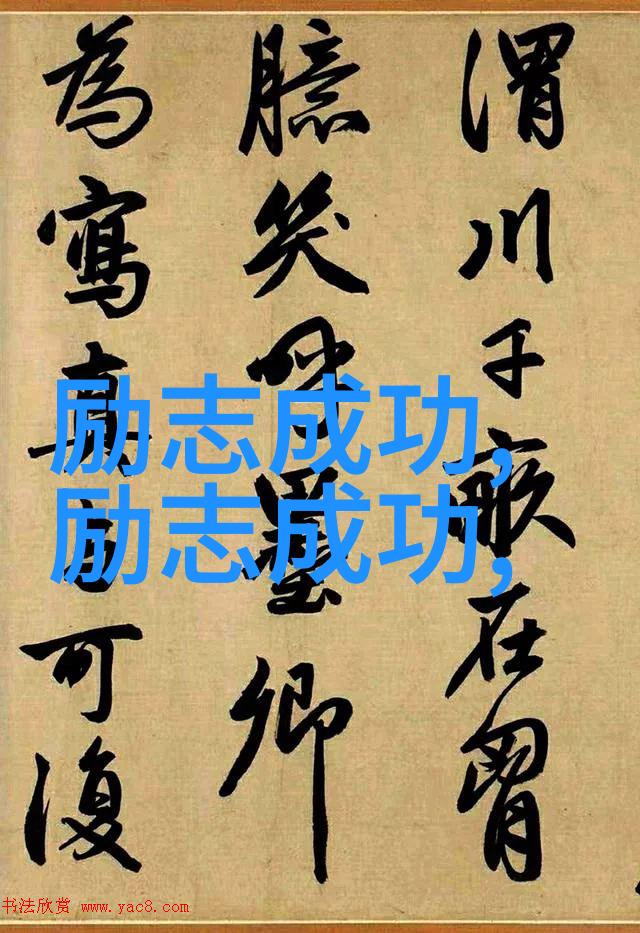 渭川千畝在胷
臆笑呼墨卿
為寫真可復
励志成功,
励志成功,
书法欣赏 www.yac8.com